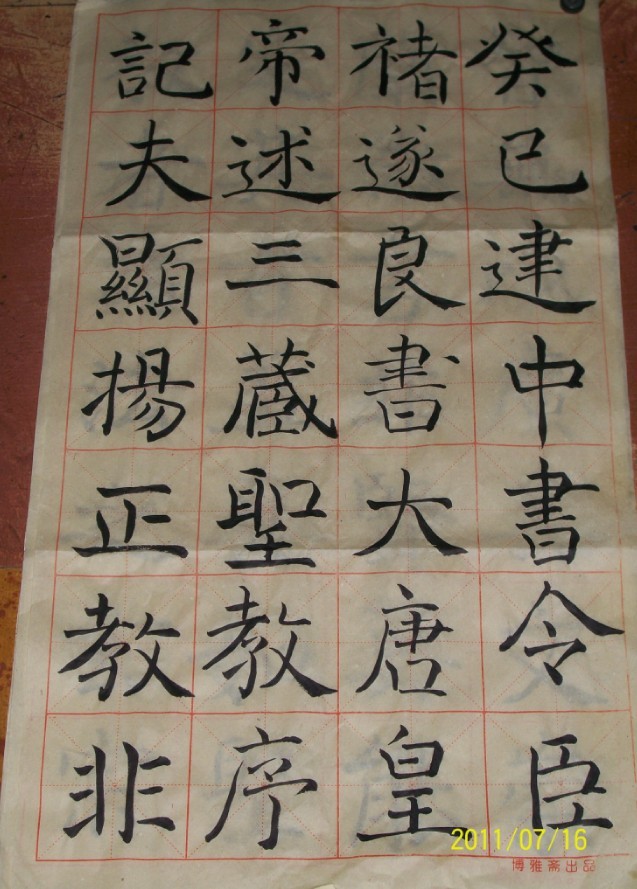 癸巳建中書令臣
褚遂良書大唐皇
帝述三蔵聖教序
記夫顯揚正教非
2011/07/16
博雅斋出品